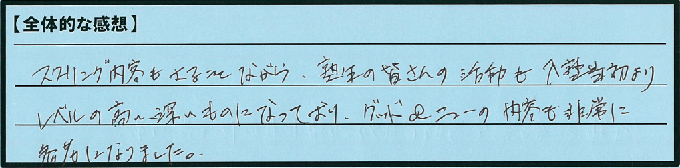 【全体的な感想】
スクーリング内容もさることながら、塾生の皆さんの活動も入塾当初より
レベルの高い深いものになっており、グッド&ニューの内容も非常に
勉強になりました。